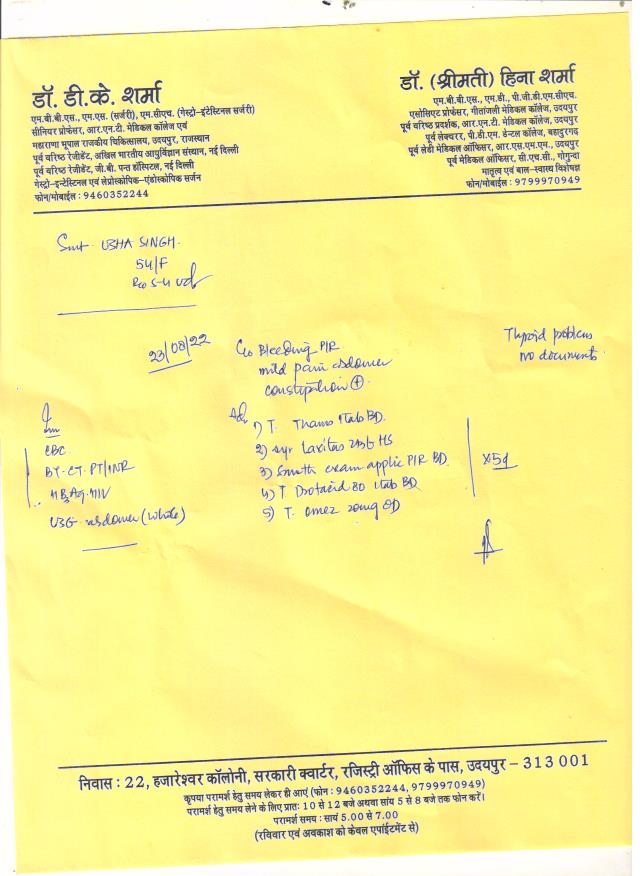 डॉ. डी.के. शर्मा
एम.बी.बी.एस., एम.एस. (सर्जरी), एम.सीएच. (गेस्ट्रो-इंटेस्टिनल सर्जरी)
सीनियर प्रोफेसर, आर.एन.टी. मेडिकल कॉलेज एवं
महाराणा भूपाल राजकीय चिकित्सालय, उदयपुर, राजस्थान
पूर्व वरिष्ठ रेजीडेंट, अखिल भारतीय आयुर्विज्ञान संस्थान, नई दिल्ली
पूर्व वरिष्ठ रेजीडेंट, जी.बी. पन्त हॉस्पिटल, नई दिल्ली
गेस्ट्रो-इन्टेस्टिनल एवं लेप्रोस्कोपिक-एंडोस्कोपिक सर्जन
फोन/मोबाईल : 9460352244
डॉ. (श्रीमती) हिना शर्मा
एम.बी.बी.एस., एम.डी., पी.जी.डी.एम.सीएच.
एसोसिएट प्रोफेसर, गीतांजली मेडिकल कॉलेज, उदयपुर
पूर्व वरिष्ठ प्रदर्शक, आर.एन.टी. मेडिकल कॉलेज, उदयपुर
पूर्व लेक्चरर, पी.डी.एम. डेन्टल कॉलेज, बहादुरगढ़
पूर्व लेडी मेडिकल ऑफिसर, आर.एस.एम.एम., उदयपुर
पूर्व मेडिकल ऑफिसर, सी.एच.सी., गोगुन्दा
मातृत्व एवं बाल-स्वास्थ्य विशेषज्ञ
फोन/मोबाईल : 9799970949
Smt. USHA SINGH.
54/F
S-4 Ud
23/08/22
C/o Bleeding P/R
mild pain abdomen
constipation +
Thyroid problem
NO documents
Adv
1) T. 1tab BD.
2) syr 
3) Smuth cream applic P/R BD.
4) T 80 1tab BD
5) T. omez 20mg OD
x5d
CBC
BT. CT. PT/INR
HBsAg. HIV
USG abdomen (whole)
निवास : 22, हजारेश्वर कॉलोनी, सरकारी क्वार्टर, रजिस्ट्री ऑफिस के पास, उदयपुर – 313 001
कृपया परामर्श हेतु समय लेकर ही आएं (फोन : 9460352244, 9799970949)
परामर्श हेतु समय लेने के लिए प्रातः 10 से 12 बजे अथवा सांय 5 से 8 बजे तक फोन करें।
परामर्श समय : सायं 5.00 से 7.00
(रविवार एवं अवकाश को केवल एपाईंटमेंट से)